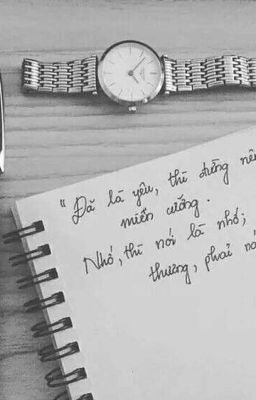 "Đã là yêu, thì đừng nên
miễn cưỡng.
Nhớ, thì nói là nhớ;
thương, phải nó